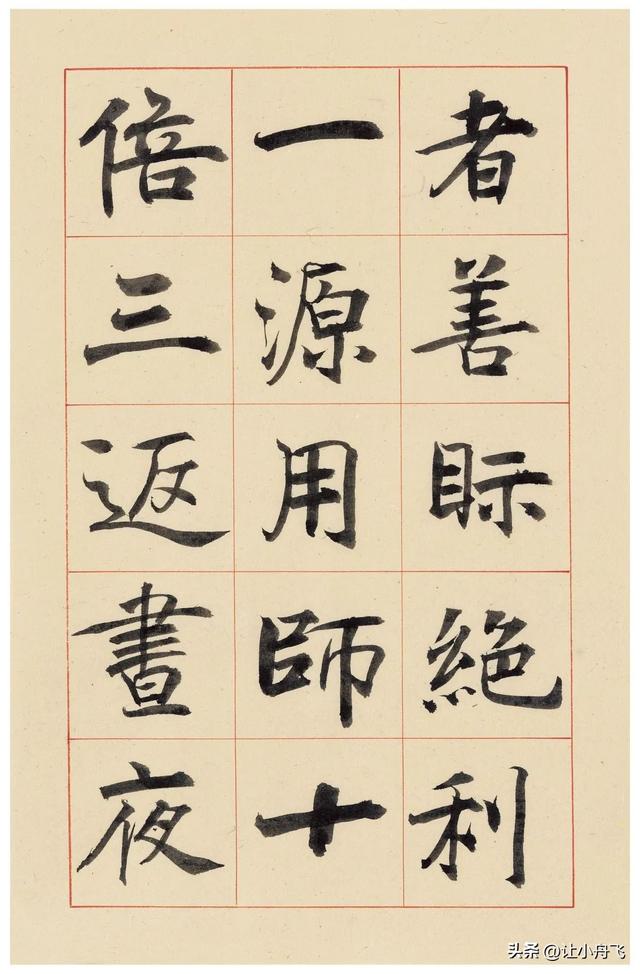 者善眎絕利
一源用師十
倍三返晝夜
头条 @让小舟飞